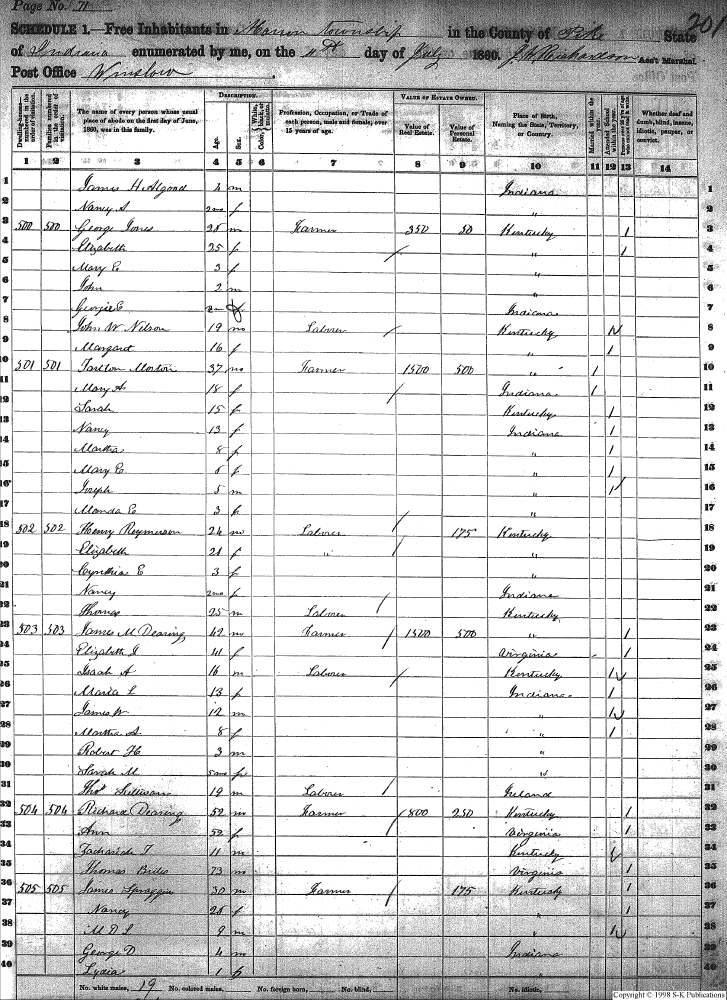 Page No. 71
201
SCHEDULE 1.—Free Inhabitants in Marion Township in the County of Pike State
of Indiana enumerated by me, on the 11th day of July 1860. J. W. Richardson Ass't Marshal
Post Office Winslow
DESCRIPTION. VALUE OF ESTATE OWNED.
Dwelling-houses numbered in the order of visitation. Families numbered in the order of visitation. The name of every person whose usual place of abode on the first day of June, 1860, was in this family. Age. Sex. Color, White, black, or mulatto. Profession, Occupation, or Trade of each person, male and female, over 15 years of age. Value of Real Estate. Value of Personal Estate. Place of Birth, Naming the State, Territory, or Country. Married within the year. Attended School within the year. Whether deaf and dumb, blind, insane, idiotic, pauper, or convict.
1 2 3 4 5 6 7 8 9 10 11 12 13 14
1 James H Algood 4 m Indiana 1
2 Nancy S f " 2
3 500 500 George Jones 28 m Farmer 350 50 Kentucky / 3
4 Elizabeth 25 f " / 4
5 Mary E 3 f " 5
6 John 2 m " 6
7 Georgie E f Indiana 7
8 John W Nelson 19 m Laborer Kentucky 8
9 Margaret 16 f " / 9
10 501 501 Tarlton Morton 37 m Farmer 1500 500 " / 10
11 Mary A 18 f Indiana / 11
12 Sarah 15 f Kentucky / 12
13 Nancy 13 f Indiana / 13
14 Martha 8 f " / 14
15 Mary E 6 f " / 15
16 Joseph 5 m " / 16
17 Manda E 3 f " 17
18 502 502 Henry 24 m Laborer 175 Kentucky 18
19 Elizabeth 21 f " " 19
20 Cynthia E 3 f " 20
21 Nancy f Indiana 21
22 Thomas 25 m Laborer Kentucky 22
23 503 503 James M Dearing 42 m Farmer 1500 500 " / 23
24 Elizabeth J 41 f Virginia / 24
25 Isaah A 16 m Laborer Kentucky / 25
26 Maria L 13 f Indiana / 26
27 James W 12 m " / 27
28 Martha A 8 f " / 28
29 Robert H 3 m " 29
30 Sarah M f " 30
31 Thos Sullivan 19 m Laborer Ireland 31
32 504 504 Richard Dearing 59 m Farmer 800 250 Kentucky / 32
33 Ann 59 f Virginia / 33
34 Zachariah T 11 m Kentucky / 34
35 Thomas 73 m Virginia / 35
36 505 505 James Spraggin 30 m Farmer 175 Kentucky / 36
37 Nancy 28 f " / 37
38 M D L 9 m " / 38
39 George D 4 m Indiana 39
40 Lydia 1 f " 40
No. white males, 19 No. colored males, No. foreign born, No. blind, No. idiotic,
Copyright © 1998 S-K Publications